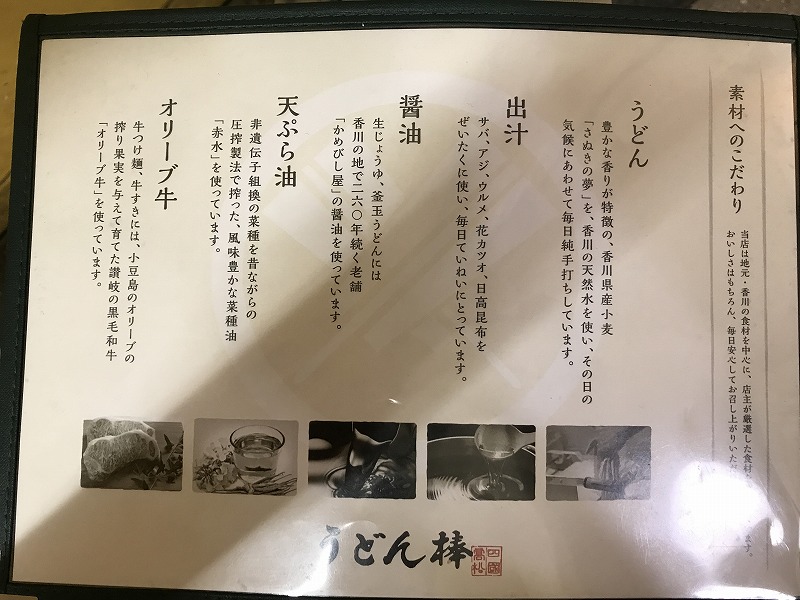 素材へのこだわり
当店は地元・香川の食材を中心に、店主が厳選した食材を
おいしさはもちろん、毎日安心してお召し上がりいただ
ます。
うどん
豊かな香りが特徴の、香川県産小麦
「さぬきの夢」を、香川の天然水を使い、その日の
気候にあわせて毎日純手打ちしています。
出汁
サバ、アジ、ウルメ、花カツオ、日高昆布を
ぜいたくに使い、毎日ていねいにとっています。
醤油
生じょうゆ、釜玉うどんには
香川の地で二六〇年続く老舗
「かめびし屋」の醤油を使っています。
天ぷら油
非遺伝子組換の菜種を昔ながらの
圧搾製法で搾った、風味豊かな菜種油
「赤水」を使っています。
オリーブ牛
牛つけ麺、牛すきには、小豆島のオリーブの
搾り果実を与えて育てた讃岐の黒毛和牛
「オリーブ牛」を使っています。
うどん棒
四國
高松